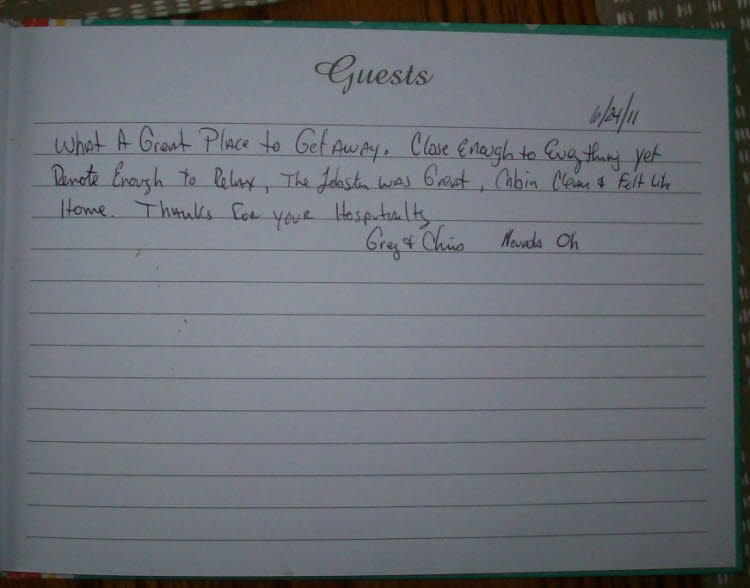 Guests
6/24/11
What A Great Place to Get Away. Close Enough to Everything yet
Remote Enough to Relax, The Lobster was Great, Cabin Clean & Felt Like
Home. Thanks For your Hospitality
Greg & Chris Nevada Oh